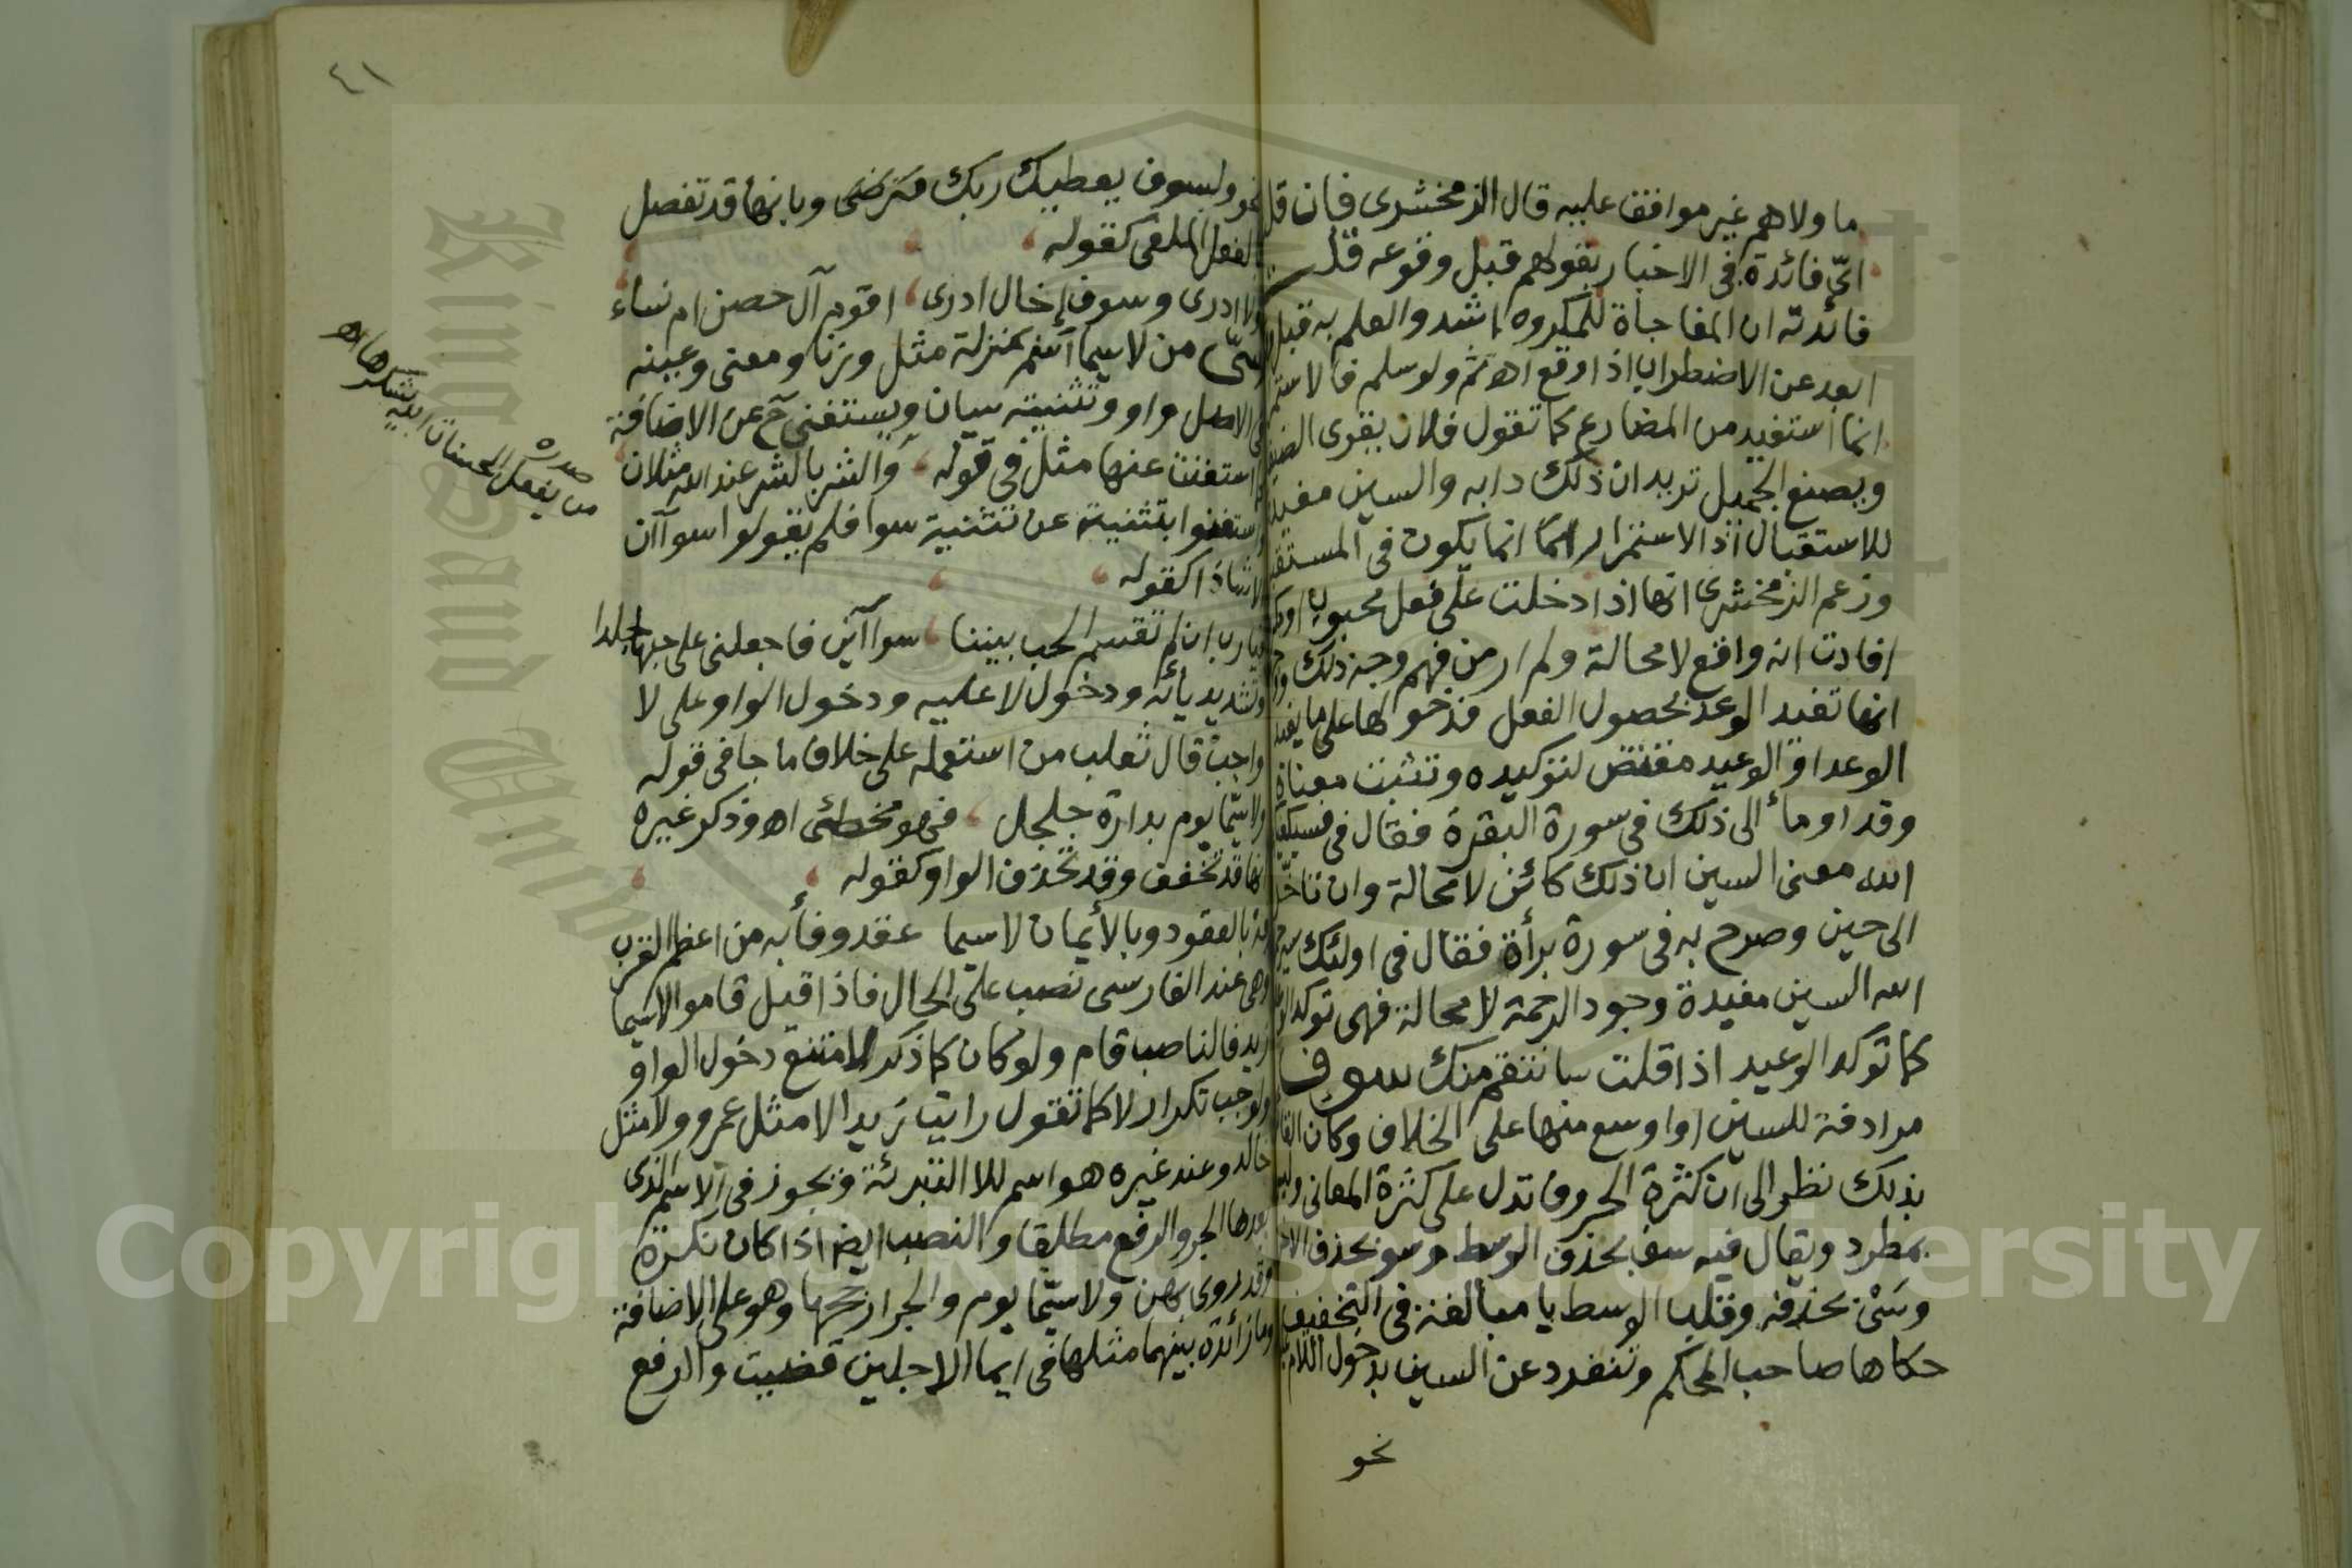 ما ولاهم غير موافق عليه قال الزمخشرى فان قل
اى فائدة فى الاخبار بقولهم قبل وقوعه قلت
فائدته ان المفاجأة للمكروه اشد والعلم به قبل
ابعد عن الاضطراب اذا وقع اه ثم ولو سلم فالاستم
انما استفيد من المضارع كما تقول فلان يقرى الضيف
ويصنع الجميل تريد ان ذلك دابه والسين مفيد
للاستقبال اذ الاستمرار انما يكون فى المستقب
وزعم الزمخشرى انها اذا دخلت على فعل محبوب او
افادت انه واقع لا محالة ولم ار من فهم وجه ذلك
انها تفيد الوعد بحصول الفعل فدخولها على ما يفيد
الوعد او الوعيد مقتض لتوكيده وتثبيت معناه
وقد اومأ الى ذلك فى سورة البقرة فقال فى فسيكفيك
الله معنى السين ان ذلك كائن لا محالة وان تاخر
الى حين وصرح به فى سورة برأة فقال فى اولئك
الله السين مفيدة وجود الرحمة لا محالة فهى توكد
كما توكد الوعيد اذا قلت سانتقم منك سوف
مرادفة للسين او اوسع منها على الخلاف وكان القا
بذلك نظر الى ان كثرة الحروف تدل على كثرة المعانى
بمطرد ويقال فيه سف بحذف الوسط وسو بحذف
وسى بحذفه وقلب الوسط يا مبالغة فى التخفيف
حكاها صاحب المحكم وتنفرد عن السين بدخول اللام
نحو
٤١
نحو ولسوف يعطيك ربك فترضى وبانها قد تفصل
بالفعل الملغى كقوله
ولا ادرى وسوف إخال ادرى اقوم آل حصن ام نساء
سىّ من لاسيما اسم بمنزلة مثل وزنا ومعنى وعينه
فى الاصل واو وتثنيته سيان ويستغنى ح عن الاضافة
كما استغنت عنها مثل فى قوله والشر بالشر عند الله مثلان
واستغنوا بتثنية عن تثنية سوا فلم يقولوا سوآان
الا شاذا كقوله
فيارب ان لم تقسم الحب بيننا سوآين فاجعلنى على حبها جلدا
وتشديد يائه ودخول لا عليه ودخول الواو على لا
واجب قال ثعلب من استعمله على خلاف ما جا فى قوله
ولاسيّما يوم بدارة جلجل فهو مخطئ اه وذكر غيره
انها قد تخفف وقد تحذف الواو كقوله
فه بالعقود وبالأيمان لاسيما عقد وفأ به من اعظم القرب
وهى عند الفارسى نصب على الحال فاذا قيل قاموا لاسيما
زيد فالناصب قام ولو كان كما ذكر لامتنع دخول الواو
ولوجب تكرار لا كما تقول رايت زيدا لا مثل عمرو ولا مثل
خالد وعند غيره هو اسم للا التبرئة ويجوز فى الاسم الذى
بعدها الجر والرفع مطلقا والنصب ايضا اذا كان نكرة
وقد روى بهن ولاسيّما يوم والجر ارجحها وهو على الاضافة
وما زائدة بينهما مثلها فى ايما الاجلين قضيت والرفع
صدره
من يفعل الحسنات الله يشكرها اه
Copyright © King Saud University
King Saud University